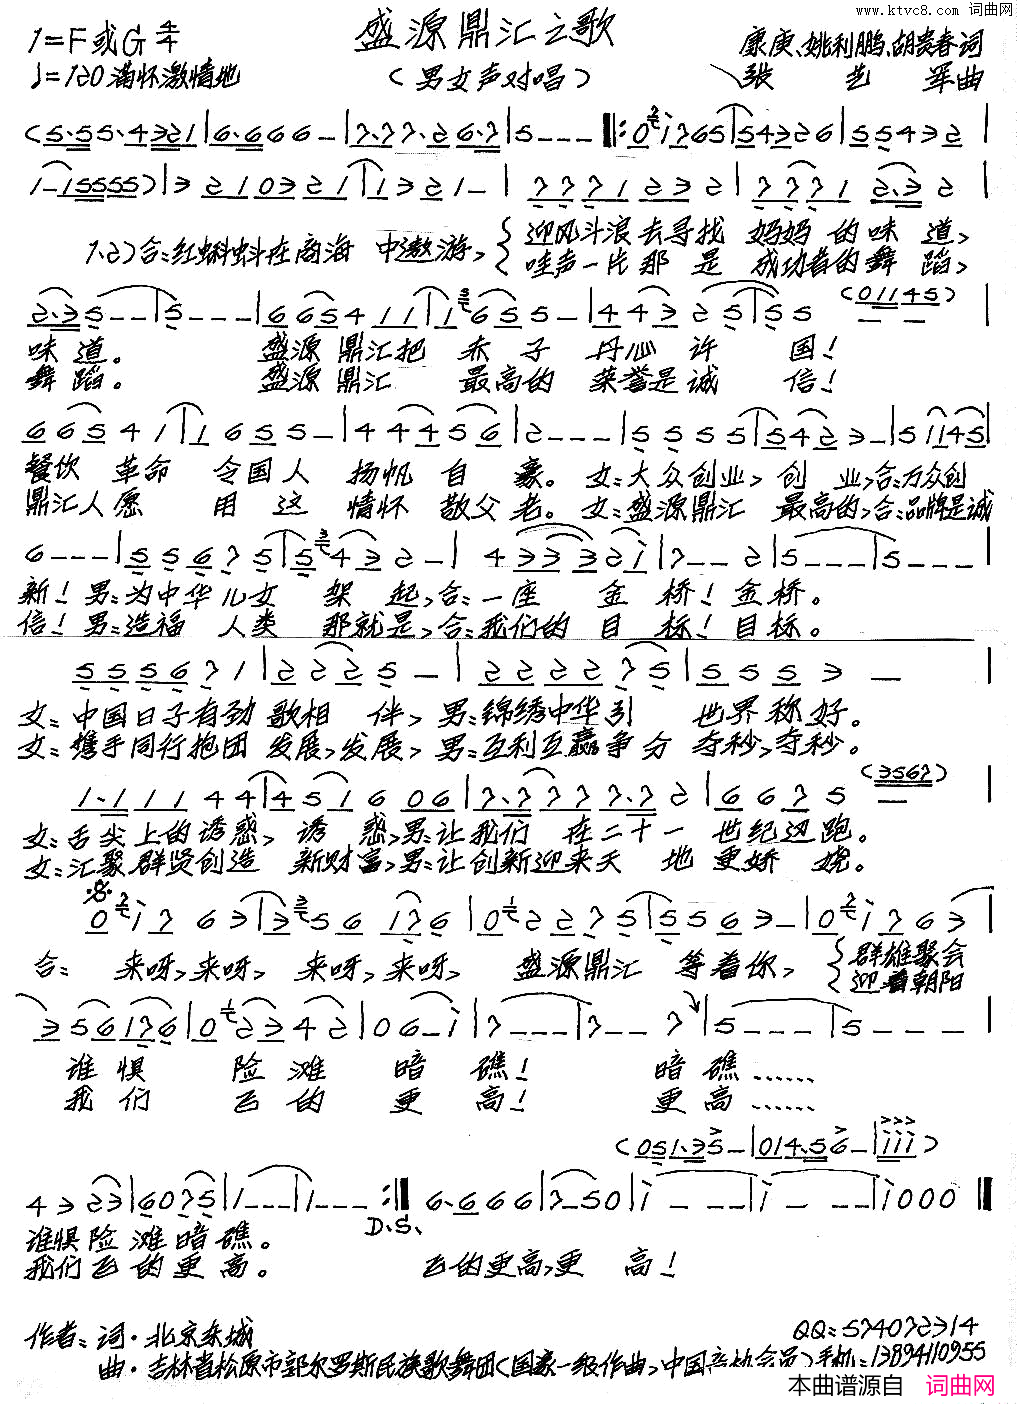 www.ktvc8.com 词曲网
盛源鼎汇之歌
1=F或G 4/4
康庚、姚利鹏、胡贵春词
♩=120 满怀激情地
（男女声对唱）
张艺军曲
(5·55·4321|6·666-|7·77·26·7|5---‖:0i765|54326|55432|
1-15555)|321032 1|1321-|7771232|77712·32|
1.2)合:红蝌蚪在商海 中遨游,
迎风斗浪去寻找 妈妈 的 味 道,
哇声一片 那 是 成功者的 舞 蹈,
2·35--|5---|665411|1655-|443255|55--
(01145)
味 道。 盛源 鼎汇把 赤 子 丹心 许 国!
舞 蹈。 盛源 鼎汇 最高的 荣誉是诚 信!
66541|1655-|44456|2---|5555|5423-|51145|
餐饮 革命 令国人 扬帆 自 豪。女:大众创业,创 业,合:万众创
鼎汇人愿 用 这 情怀 敬父老。女:盛源鼎汇 最高的,合:品牌是诚
6---|55675|5432-|43332i|7--2|5---|5---
新!男:为中华儿女 架 起,合:一座 金 桥!金桥。
信!男:造福 人类 那就是,合:我们的 目 标!目标。
555671|2225-|222275|5553-|
女:中国日子有劲 歌相 伴,男:锦绣中华引 世界称好。
女:携手同行抱团 发展,发展,男:互利互赢争分 夺秒,夺秒。
1·11144|451606|7·7777·72|6675-
(3567)
女:舌尖上的诱惑,诱 惑,男:让我们 在二十一 世纪边跑。
女:汇聚群贤创造 新财富,男:让创新迎来天 地 更娇 娆。
0i763|3356176|022755|5563-|0i763|
合: 来呀,来呀, 来呀,来呀, 盛源鼎汇 等着你,
群雄聚会
迎着朝阳
356176|02342|06-i|7---|7--7|5---|5---|
谁惧 险滩 暗 礁! 暗礁……
我们 飞的 更 高! 更高……
(051·35-|014·56-|iii)
4323|6075|1---|1---:‖6·666|7-50|i---|i---|i000‖
D.S.
谁惧险滩暗礁。
我们飞的更高。 飞的更高,更 高!
作者:词·北京东城
QQ:574072314
曲·吉林省松原市郭尔罗斯民族歌舞团(国家一级作曲,中国音协会员)手机:13894110955
本曲谱源自 词曲网